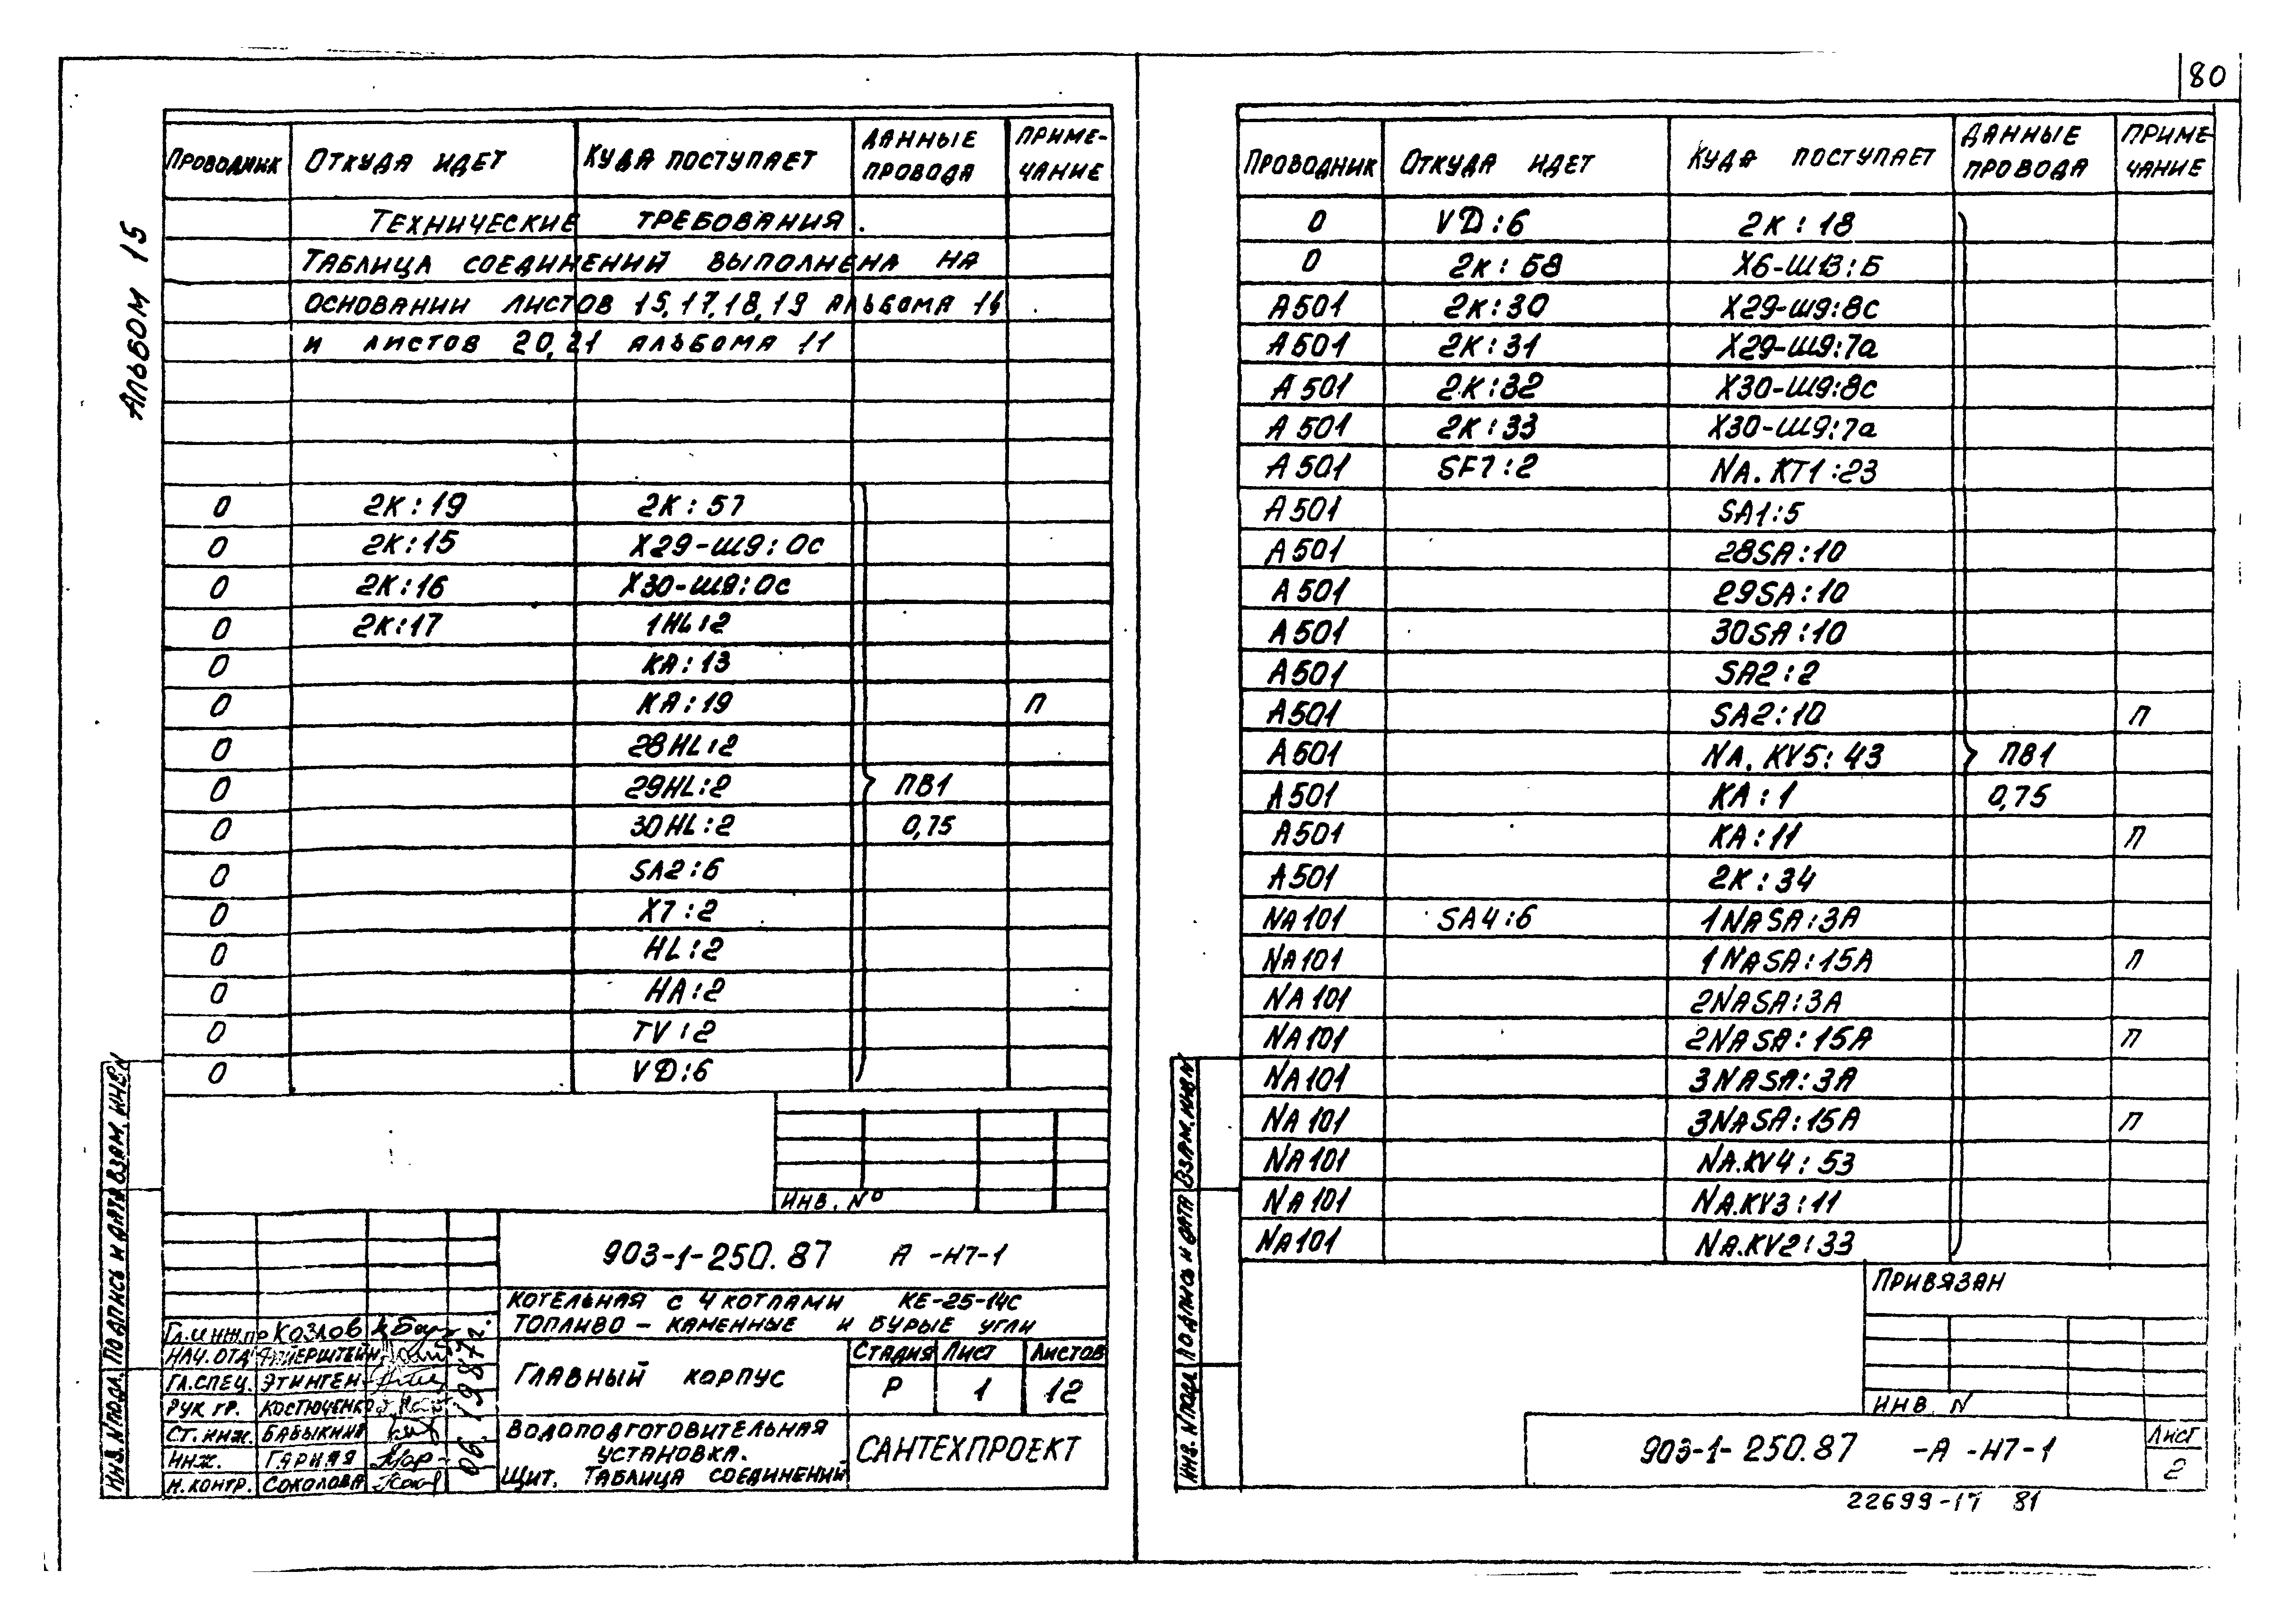 80
Альбом 15
Проводник Откуда идет Куда поступает Данные провода Приме-чание
Технические требования.
Таблица соединений выполнена на
основании листов 15, 17, 18, 19 альбома 14
и листов 20, 21 альбома 11
0 2К:19 2К:57
0 2К:15 Х29-Ш9:0с
0 2К:16 Х30-Ш9:0с
0 2К:17 1HL:2
0 КА:13
0 КА:19 П
0 28HL:2
0 29HL:2 ПВ1
0 30HL:2 0,75
0 SA2:6
0 Х7:2
0 HL:2
0 НА:2
0 TV:2
0 VD:6
Инв. №
903-1-250.87 А -Н7-1
Котельная с 4 котлами КЕ-25-14С
Топливо - каменные и бурые угли
Гл.инж.пр Козлов
Нач.отд
Гл.спец. Этинген
Рук гр. Костюченко
Ст. инж. Бабыкина
Инж. Гарная
Н.контр. Соколова
06.1987г.
Главный корпус
Стадия Лист Листов
Р 1 12
Водоподготовительная
установка.
Щит. Таблица соединений
САНТЕХПРОЕКТ
Инв. № подл. Подпись и дата Взам. инв. №
Проводник Откуда идет Куда поступает Данные провода Приме чание
0 VD:6 2К:18
0 2К:58 Х6-Ш13:Б
А501 2К:30 Х29-Ш9:8с
А501 2К:31 Х29-Ш9:7а
А501 2К:32 Х30-Ш9:8с
А501 2К:33 Х30-Ш9:7а
А501 SF7:2 NA.KT1:23
А501 SA1:5
А501 28SA:10
А501 29SA:10
А501 30SA:10
А501 SA2:2
А501 SA2:10 П
А501 NA.KV5:43 ПВ1
А501 КА:1 0,75
А501 КА:11 П
А501 2К:34
NA101 SA4:6 1NASA:3A
NA101 1NASA:15A П
NA101 2NASA:3A
NA101 2NASA:15A П
NA101 3NASA:3A
NA101 3NASA:15A П
NA101 NA.KV4:53
NA101 NA.KV3:11
NA101 NA.KV2:33
Привязан
Инв. N
903-1-250.87 -А -Н7-1
Лист
2
Инв. № подл. Подпись и дата Взам. инв. №
22699-17 81